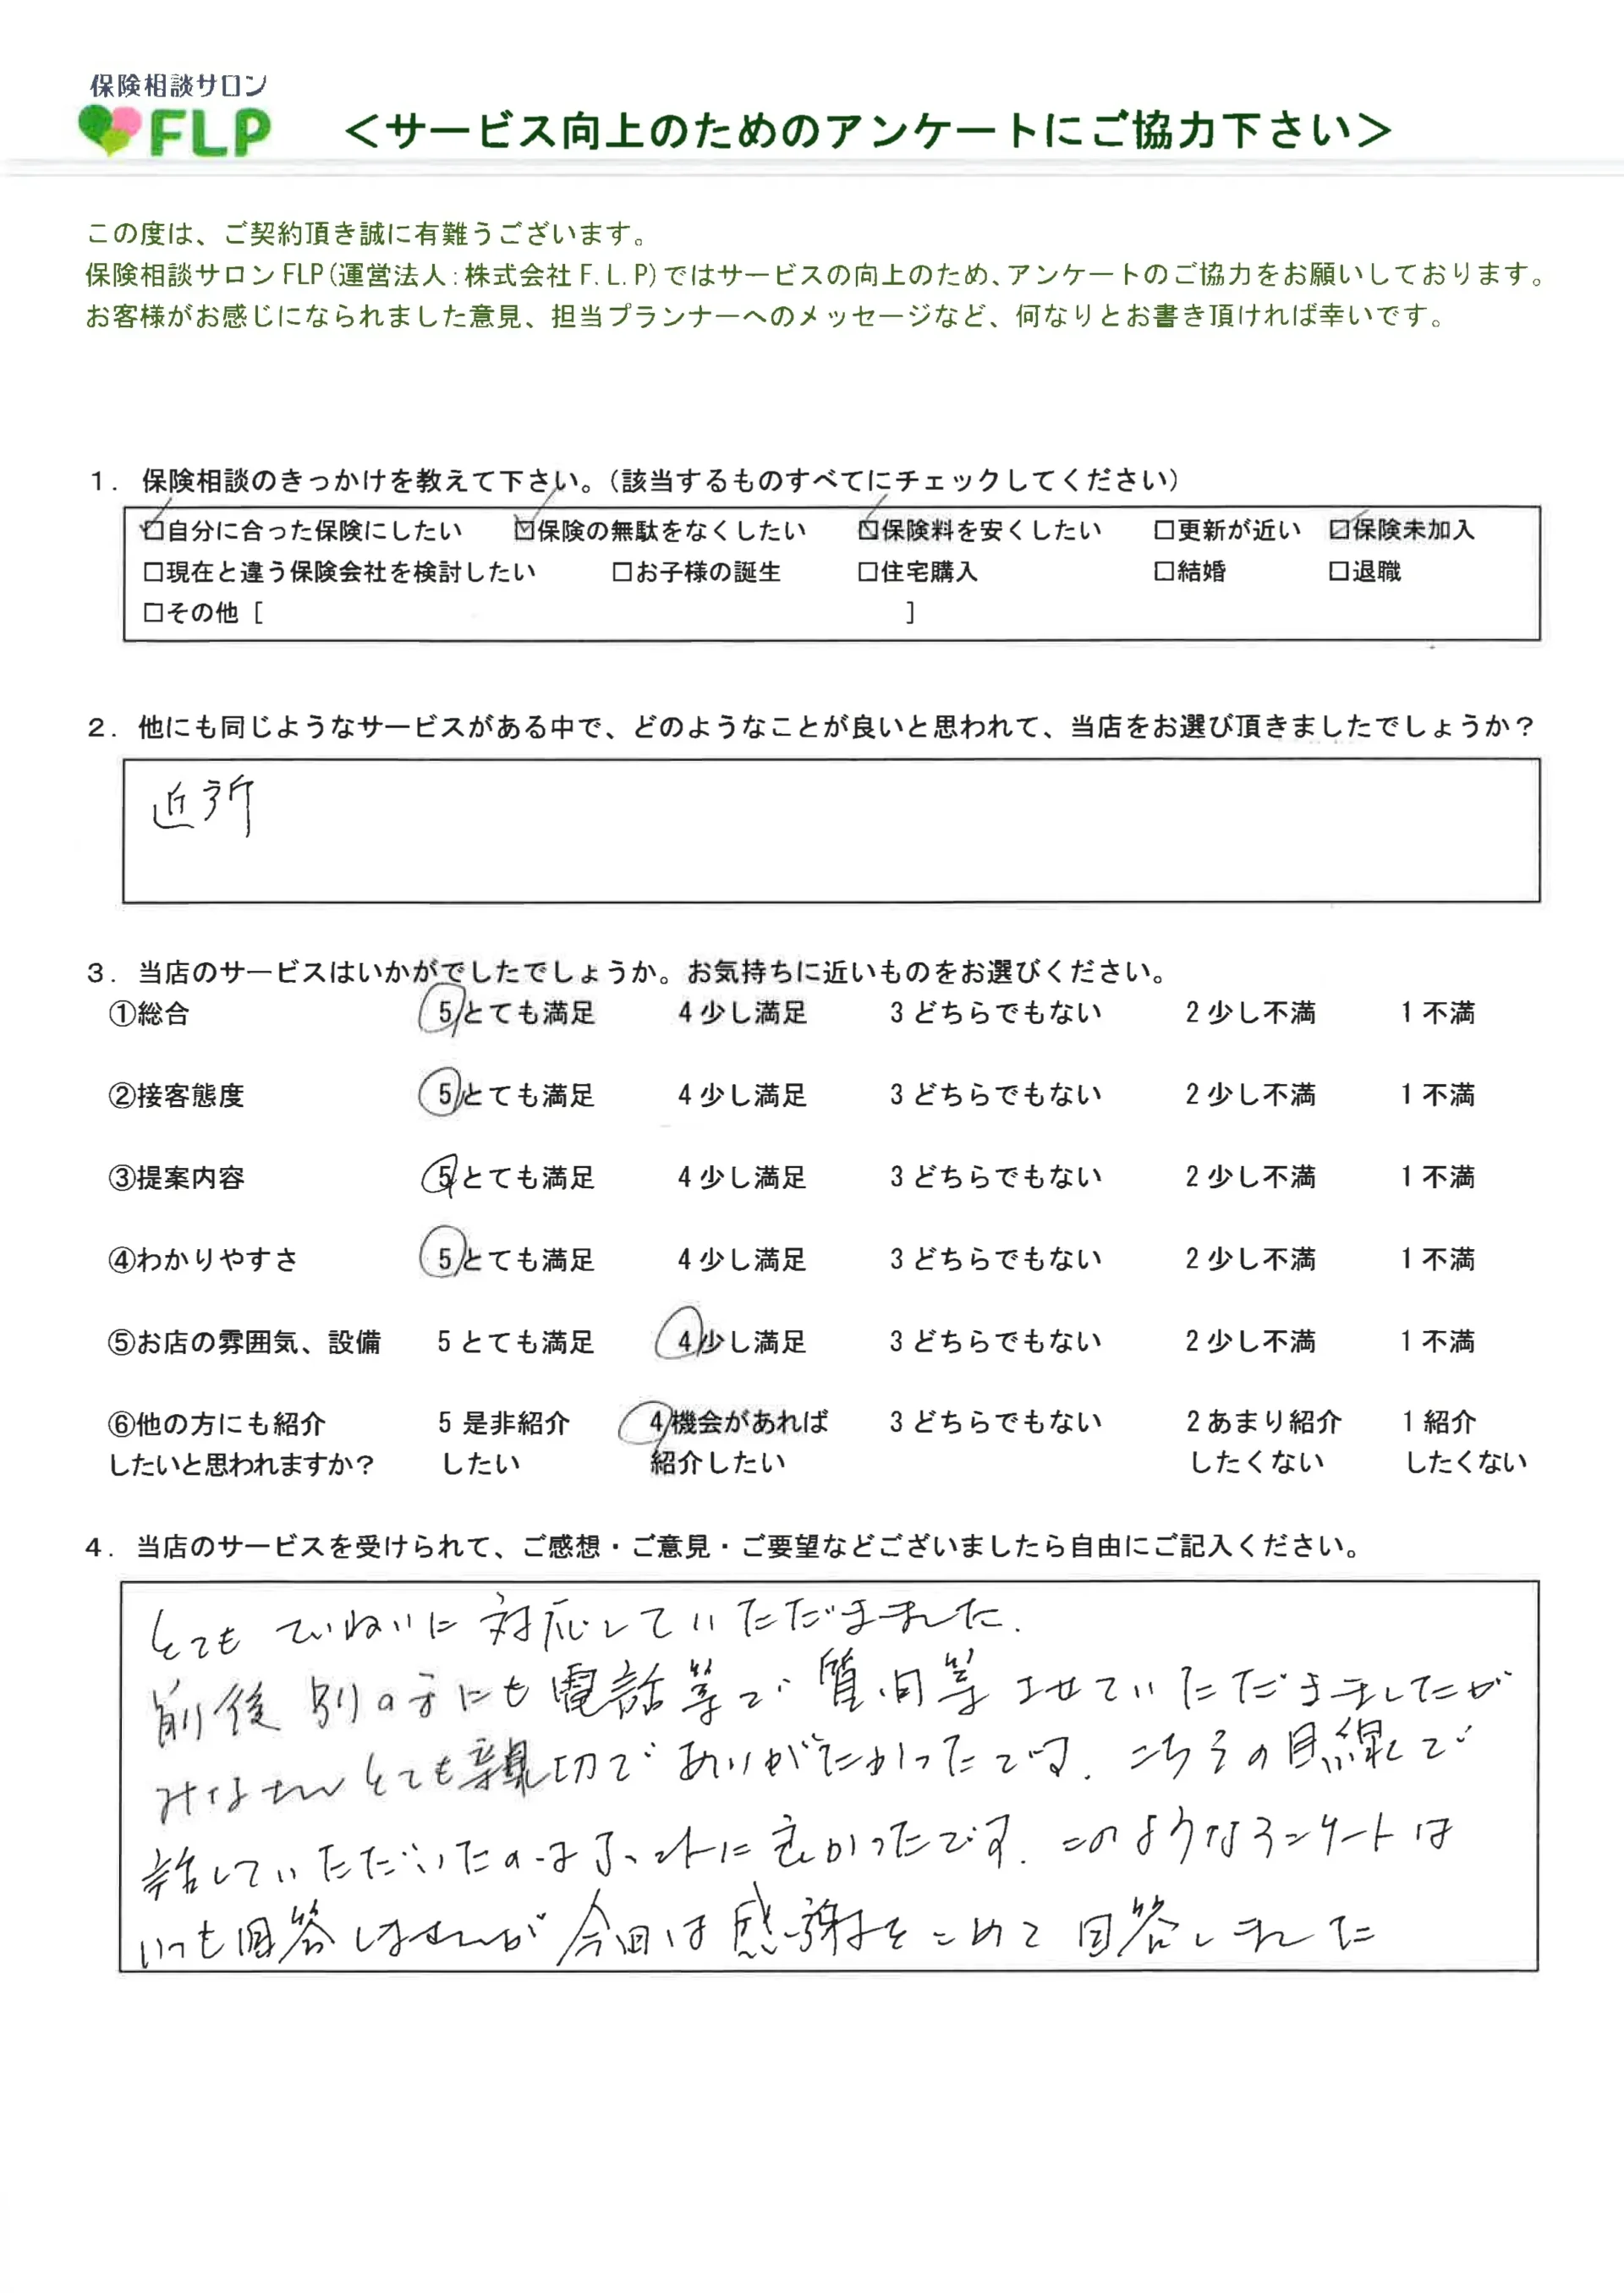 保険相談サロン
FLP
＜サービス向上のためのアンケートにご協力下さい＞
この度は、ご契約頂き誠に有難うございます。
保険相談サロンFLP(運営法人:株式会社F.L.P)ではサービスの向上のため、アンケートのご協力をお願いしております。
お客様がお感じになられました意見、担当プランナーへのメッセージなど、何なりとお書き頂ければ幸いです。
1. 保険相談のきっかけを教えて下さい。(該当するものすべてにチェックしてください)
☑自分に合った保険にしたい ☑保険の無駄をなくしたい ☑保険料を安くしたい □更新が近い ☑保険未加入
□現在と違う保険会社を検討したい □お子様の誕生 □住宅購入 □結婚 □退職
□その他 [ ]
2. 他にも同じようなサービスがある中で、どのようなことが良いと思われて、当店をお選び頂きましたでしょうか？
近所
3. 当店のサービスはいかがでしたでしょうか。お気持ちに近いものをお選びください。
①総合 5とても満足 4少し満足 3どちらでもない 2少し不満 1不満
②接客態度 5とても満足 4少し満足 3どちらでもない 2少し不満 1不満
③提案内容 5とても満足 4少し満足 3どちらでもない 2少し不満 1不満
④わかりやすさ 5とても満足 4少し満足 3どちらでもない 2少し不満 1不満
⑤お店の雰囲気、設備 5とても満足 4少し満足 3どちらでもない 2少し不満 1不満
⑥他の方にも紹介 5是非紹介 4機会があれば 3どちらでもない 2あまり紹介 1紹介
したいと思われますか？ したい 紹介したい したくない したくない
4. 当店のサービスを受けられて、ご感想・ご意見・ご要望などございましたら自由にご記入ください。
とても ていねいに 対応していただきました.
前後 別の方にも電話等で 質問等 させていただきましたが
みなさん とても親切で ありがたかったです. こちらの目線で
話していただいたのは 本当に良かったです. このようなアンケートは
いつも回答しませんが 今回は感謝をこめて 回答しました